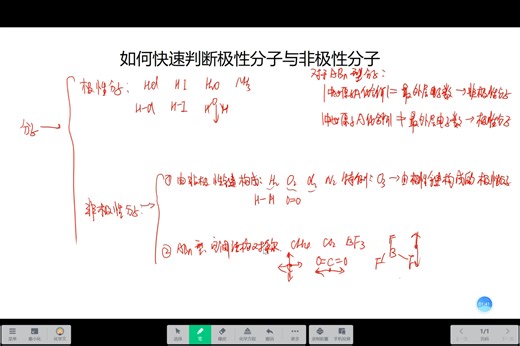 如何快速判断极性分子与非极性分子
极性分子: HCl HI H₂O NH₃
H-Cl H-I H H
对于ABn型分子:
|中心原子A化合价|=最外层电子数→非极性分子
|中心原子A化合价|≠最外层电子数→极性分子
分子
非极性分子:
①由非极性键构成: H₂ O₂ Cl₂ N₂ 特例: O₃→由极性键构成的极性分子
H-H O=O
②ABn型:空间结构对称 CH₄ CO₂ BF₃
O=C=O
F
B
F F
1/1